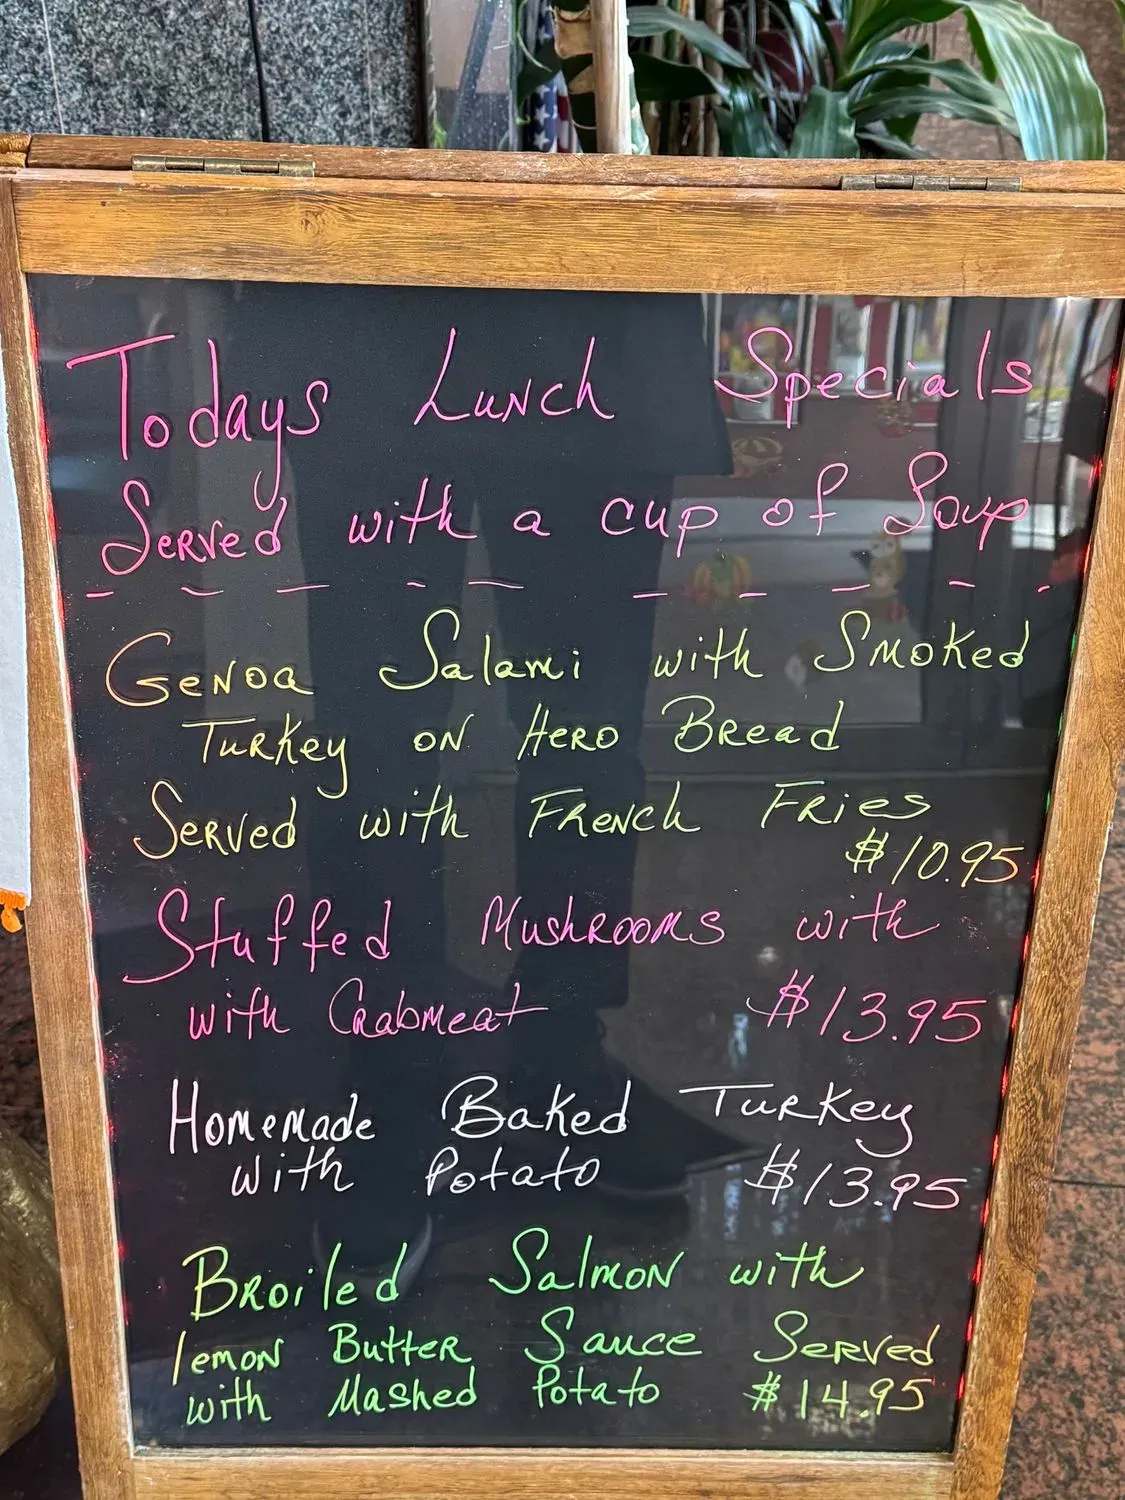 Todays Lunch Specials
Served with a cup of Soup
Genoa Salami with Smoked
Turkey on Hero Bread
Served with French Fries
$10.95
Stuffed Mushrooms with
with Crabmeat $13.95
Homemade Baked Turkey
with Potato $13.95
Broiled Salmon with
lemon Butter Sauce Served
with Mashed Potato $14.95